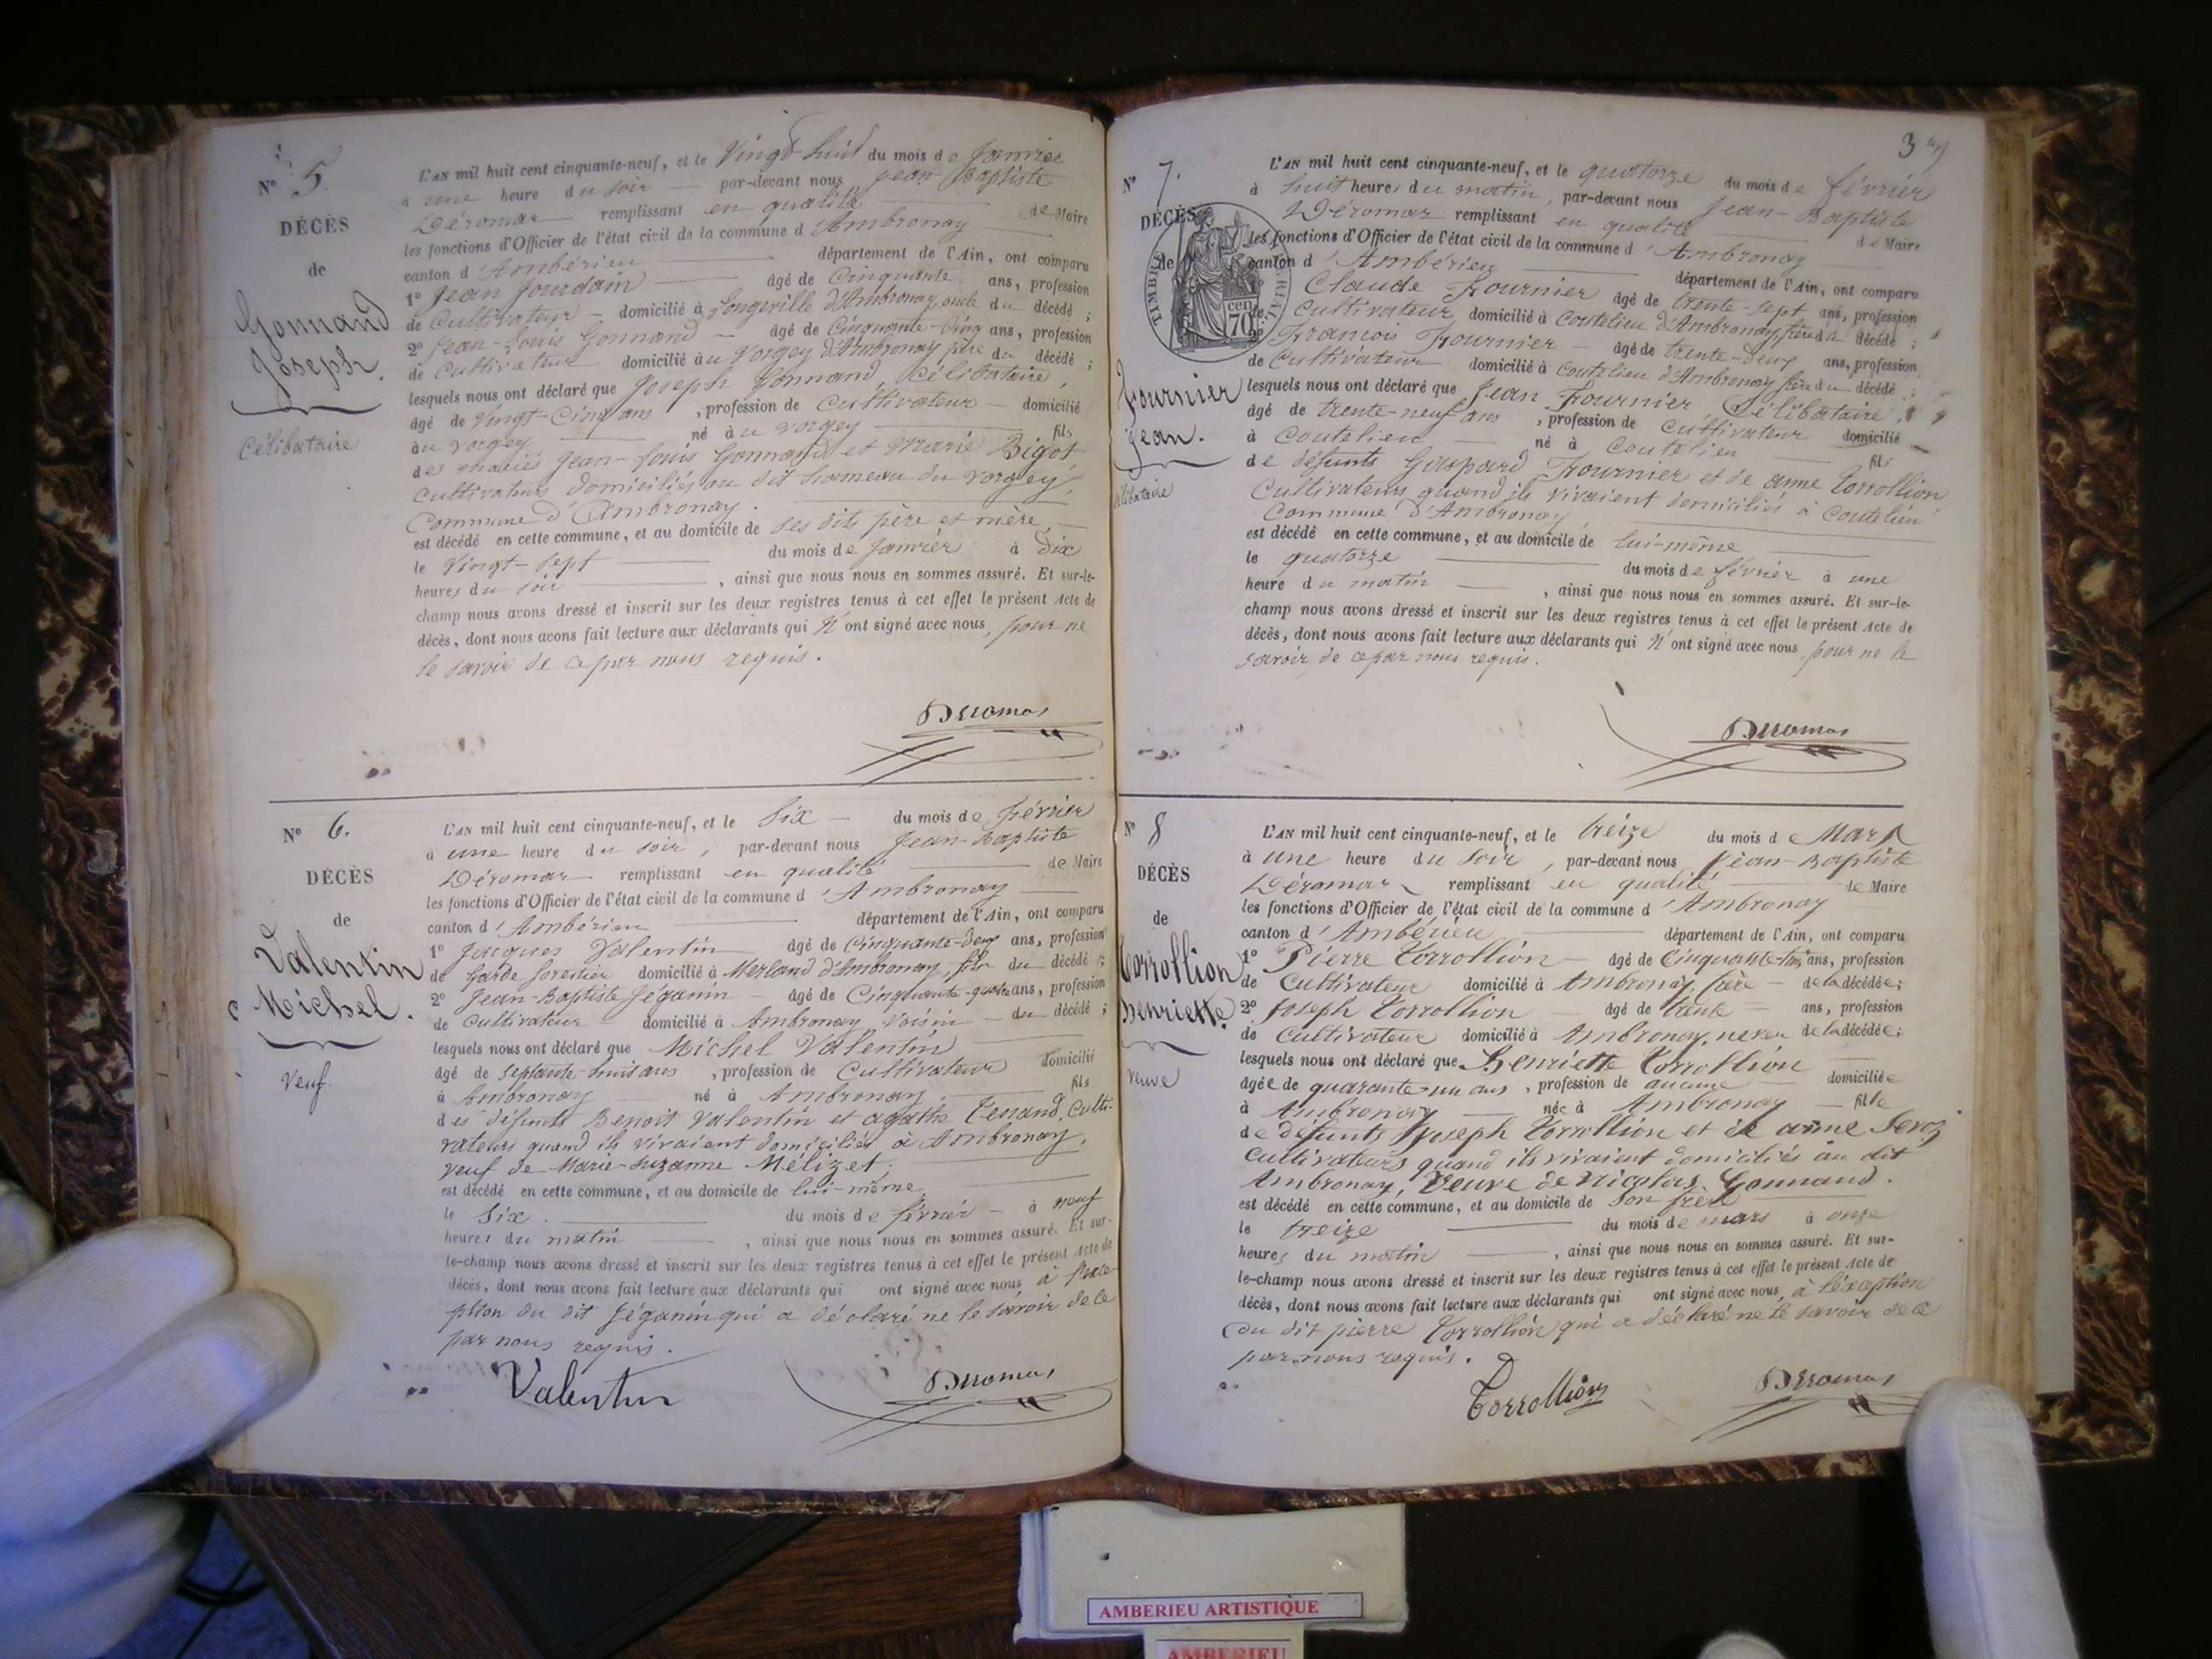 N° 5.
DÉCÈS
de
Gonnand
Joseph.
Célibataire
L'AN mil huit cent cinquante-neuf, et le Vingt huit du mois de Janvier
à une heure du soir par-devant nous Jean Baptiste
Déromas remplissant en qualité de Maire
les fonctions d'Officier de l'état civil de la commune d'Ambronay
canton d'Ambérieu département de l'Ain, ont comparu
1° Jean Jourdain âgé de Cinquante ans, profession
de Cultivateur domicilié à Longeville d'Ambronay, oncle du décédé ;
2° Jean-Louis Gonnand âgé de Cinquante-Cinq ans, profession
de Cultivateur domicilié au Vorgey d'Ambronay père du décédé ;
lesquels nous ont déclaré que Joseph Gonnand, Célibataire,
âgé de Vingt-Cinq ans, profession de Cultivateur domicilié
au Vorgey né au Vorgey fils
des mariés Jean-Louis Gonnand et Marie Bigot
Cultivateurs domiciliés au dit hameau du Vorgey,
Commune d'Ambronay.
est décédé en cette commune, et au domicile de ses dits père et mère,
le Vingt-sept du mois de Janvier à Dix
heures du soir, ainsi que nous nous en sommes assuré. Et sur-le-
champ nous avons dressé et inscrit sur les deux registres tenus à cet effet le présent Acte de
décès, dont nous avons fait lecture aux déclarants qui N'ont signé avec nous, pour ne
le savoir de ce par nous requis.
Deromas
N° 6.
DÉCÈS
de
Valentin
Michel.
Veuf.
L'AN mil huit cent cinquante-neuf, et le Six du mois de Février
à une heure du soir, par-devant nous Jean-Baptiste
Déromas remplissant en qualité de Maire
les fonctions d'Officier de l'état civil de la commune d'Ambronay
canton d'Ambérieu département de l'Ain, ont comparu
1° Jacques Valentin âgé de Cinquante-deux ans, profession
de Garde forestier domicilié à Merland d'Ambronay, fils du décédé ;
2° Jean-Baptiste Jéganin âgé de Cinquante-quatre ans, profession
de Cultivateur domicilié à Ambronay Voisin du décédé ;
lesquels nous ont déclaré que Michel Valentin
âgé de septante-huit ans, profession de Cultivateur domicilié
à Ambronay né à Ambronay. fils
des défunts Benoit Valentin et agathe Tenand, Culti-
vateurs quand ils vivaient domiciliés à Ambronay,
veuf de Marie-Suzanne Mélizet.
est décédé en cette commune, et au domicile de lui-même
le Six. du mois de février à neuf
heures du matin, ainsi que nous nous en sommes assuré. Et sur-
le-champ nous avons dressé et inscrit sur les deux registres tenus à cet effet le présent Acte de
décès, dont nous avons fait lecture aux déclarants qui ont signé avec nous à l'exce-
ption du dit Jéganin qui a déclaré ne le savoir de ce
par nous requis.
Valentin
Deromas
3
N° 7.
DÉCÈS
de
TIMBRE IMPÉRIAL
70 cen
Fournier
Jean.
célibataire
L'AN mil huit cent cinquante-neuf, et le quatorze du mois de février
à huit heures du matin, par-devant nous Jean-Baptiste
Déromas remplissant en qualité de Maire
les fonctions d'Officier de l'état civil de la commune d'Ambronay
canton d'Ambérieu département de l'Ain, ont comparu
Claude Fournier âgé de trente-sept ans, profession
Cultivateur domicilié à Coutelieu d'Ambronay frère du décédé ;
2° François Fournier âgé de trente-deux ans, profession
de Cultivateur domicilié à Coutelieu d'Ambronay frère du décédé ;
lesquels nous ont déclaré que Jean Fournier Célibataire,
âgé de trente-neuf ans, profession de Cultivateur domicilié
à Coutelieu né à Coutelieu fils
de défunts Gaspard Fournier et de anne Torrollion
Cultivateurs quand ils vivaient domiciliés à Coutelieu
Commune d'Ambronay
est décédé en cette commune, et au domicile de lui-même
le quatorze du mois de février à une
heure du matin, ainsi que nous nous en sommes assuré. Et sur-le-
champ nous avons dressé et inscrit sur les deux registres tenus à cet effet le présent Acte de
décès, dont nous avons fait lecture aux déclarants qui N'ont signé avec nous pour ne le
savoir, de ce par nous requis.
Deromas
N° 8
DÉCÈS
de
Torrollion
Henriette.
Veuve
L'AN mil huit cent cinquante-neuf, et le treize du mois de Mars
à une heure du soir, par-devant nous Jean-Baptiste
Déromas remplissant en qualité de Maire
les fonctions d'Officier de l'état civil de la commune d'Ambronay
canton d'Ambérieu département de l'Ain, ont comparu
1° Pierre Torrollion âgé de Cinquante-trois ans, profession
de Cultivateur domicilié à Ambronay, frère de la décédée ;
2° Joseph Torrollion âgé de trente ans, profession
de Cultivateur domicilié à Ambronay, neveu de la décédée ;
lesquels nous ont déclaré que Henriette Torrollion
âgée de quarante-un ans, profession de aucune domiciliée
à Ambronay née à Ambronay fille
de défunts Joseph Torrollion et de anne
Cultivateurs quand ils vivaient domiciliés au dit
Ambronay, Veuve de Nicolas Gonnand.
est décédé en cette commune, et au domicile de son frère
le treize du mois de mars à onze
heures du matin, ainsi que nous nous en sommes assuré. Et sur-
le-champ nous avons dressé et inscrit sur les deux registres tenus à cet effet le présent Acte de
décès, dont nous avons fait lecture aux déclarants qui ont signé avec nous, à l'exception
du dit pierre Torrollion qui a déclaré ne le savoir de ce
par nous requis.
Torrollion
Deromas
AMBERIEU ARTISTIQUE
AMBERIEU